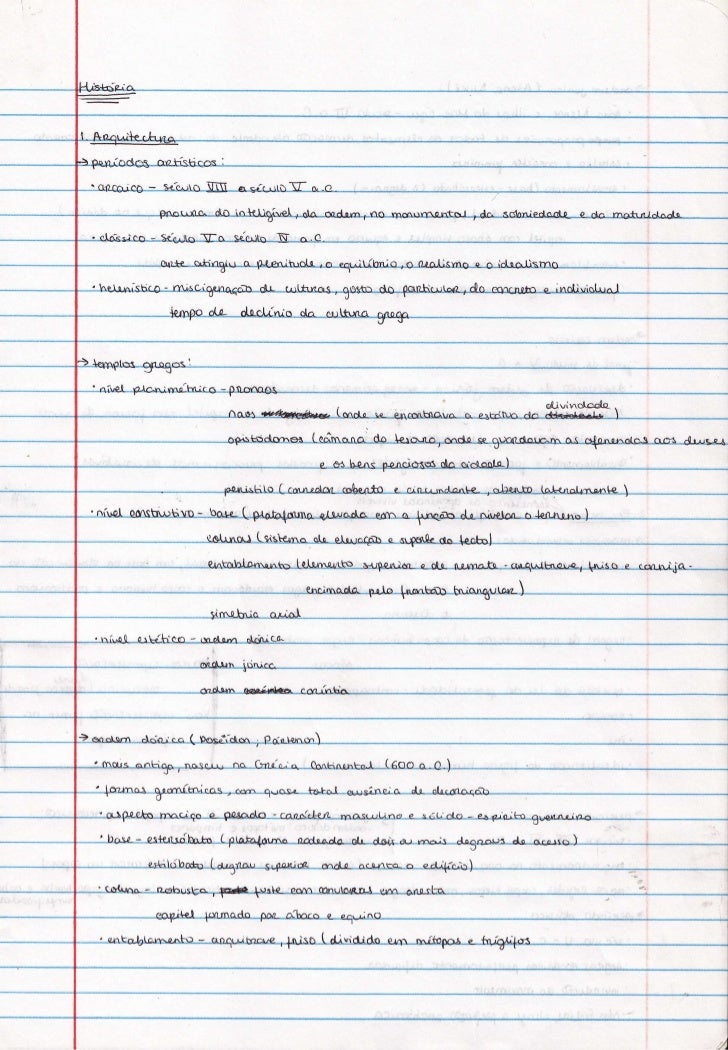 História
1. Arquitectura
→ períodos artísticos:
• arcaico - século VIII a século V a.C.
procura do inteligível, da ordem, no monumental, da sobriedade e da maturidade
• clássico - século V a século IV a.C.
arte atingiu a plenitude, o equilíbrio, o realismo e o idealismo
• helenístico - miscigenação de culturas, gosto do particular, do concreto e individual
tempo de declínio da cultura grega
→ templos gregos:
• nível planimétrico - pronaos
naos (onde se encontrava a estátua da divindade)
opistodomos (câmara do tesouro, onde se guardavam as oferendas aos deuses
e os bens preciosos da cidade)
peristilo (corredor coberto e circundante, aberto lateralmente)
• nível construtivo - base (plataforma elevada com a função de nivelar o terreno)
colunas (sistema de elevação e suporte do tecto)
entablamento (elemento superior e de remate - arquitrave, friso e cornija -
encimada pelo frontão triangular)
simetria axial
• nível estético - ordem dórica
ordem jónica
ordem coríntia
→ ordem dórica (Poseidon, Partenon)
• mais antiga, nasceu na Grécia Continental (600 a.C.)
• formas geométricas, com quase total ausência de decoração
• aspecto maciço e pesado - carácter masculino e sólido - espírito guerreiro
• base - esteróbato (plataforma rodeada de dois ou mais degraus de acesso)
estilóbato (degrau superior onde acenta o edifício)
• coluna - robusta, fuste com caneluras em aresta
capitel formado por ábaco e equino
• entablamento - arquitrave, friso (dividido em métopas e tríglifos